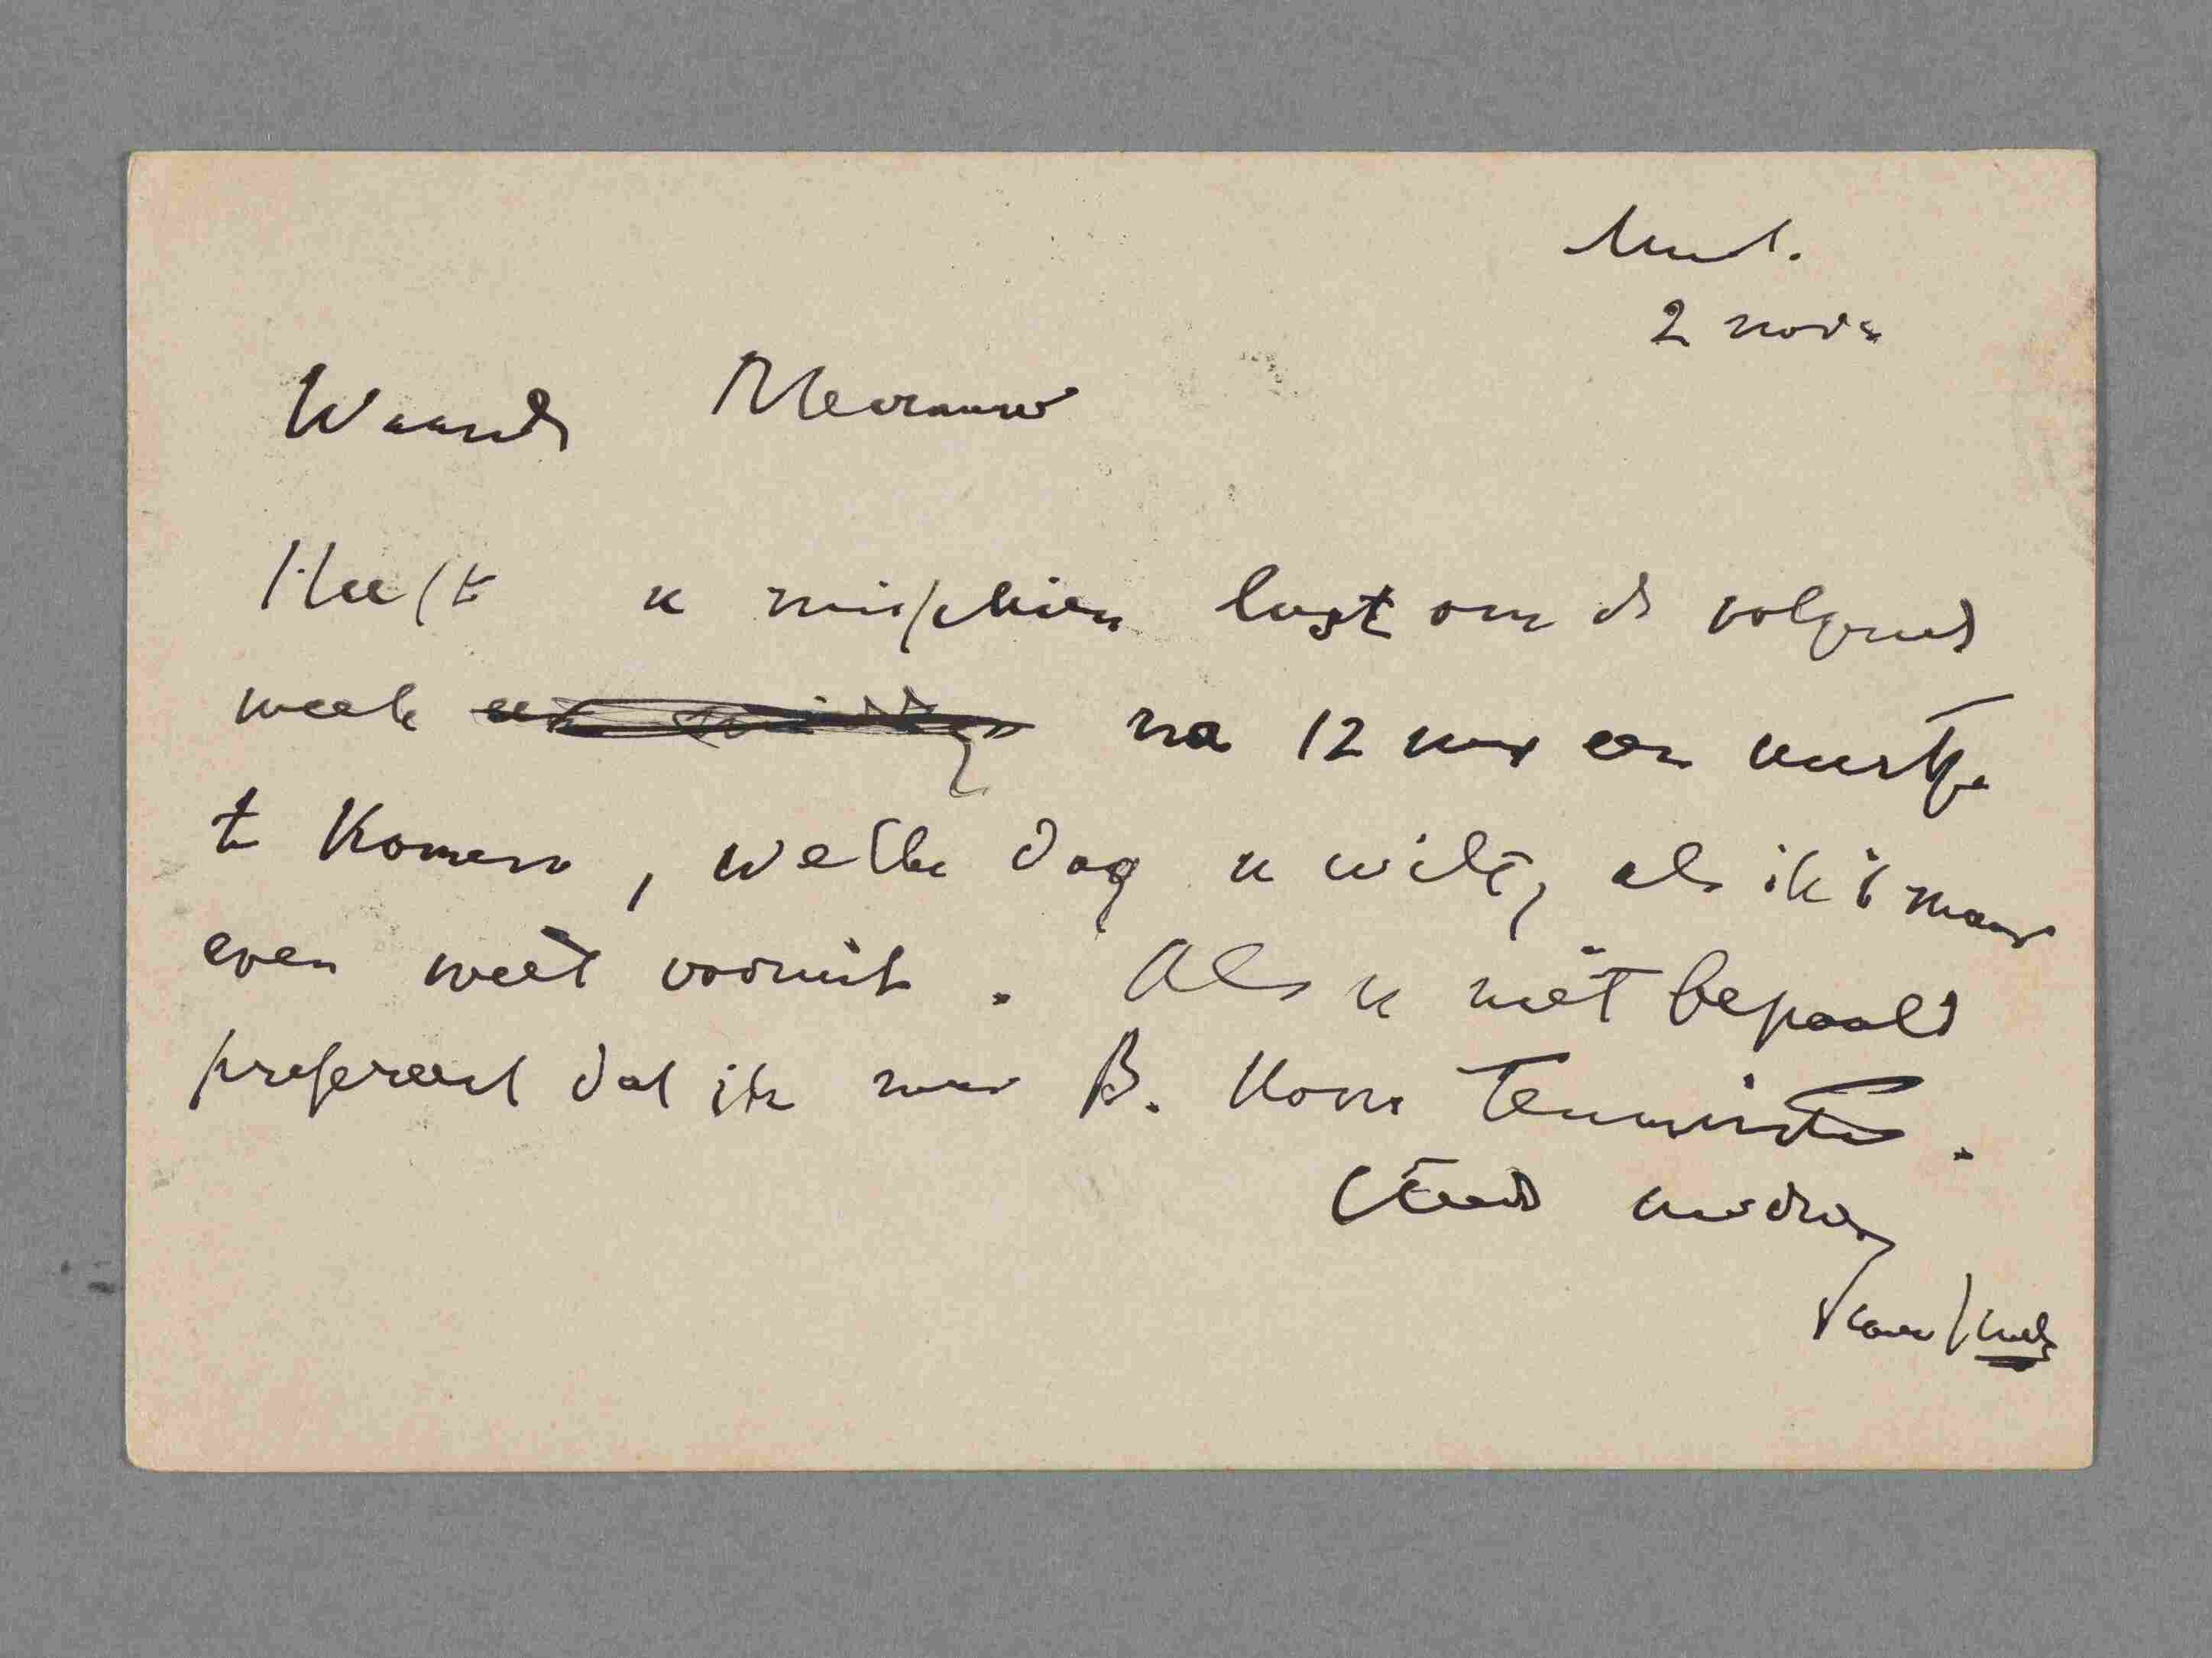 2 nov.
Waarde Mevrouw
Heeft u misschien lust om de volgende
week na 12 uur een uurtje
te komen, welke dag u wilt, als ik 't maar
even weet vooruit. Als u niet bepaald
prefereert dat ik naar B. kom tenminste.
Steeds